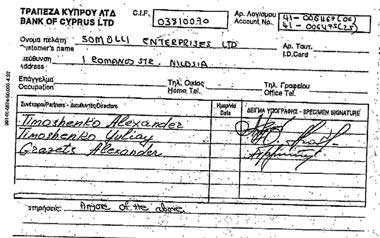 ΤΡΑΠΕΖΑ ΚΥΠΡΟΥ ΛΤΔ
BANK OF CYPRUS LTD
C.I.F.
03810090
Αρ. Λογ/σμου
Account No.
Ονομα πελάτη
Customer's name
SOMOLLI ENTERPRISES LTD
Αρ. Ταυτ.
I.D.Card
Διεύθυνση
Address
1 ROMANOS STR. NICOSIA
Επάγγελμα
Occupation
Τηλ. Οικίας
Home Tel.
Τηλ. Γραφείου
Office Tel.
Συνέταιροι/Partners - Διευθυντές/Directors
Ημερ/νία
Date
ΔΕΙΓΜΑ ΥΠΟΓΡΑΦΗΣ - SPECIMEN SIGNATURE
Timoshenko Alexander
Timoshenko Yuliay
Gravets Alexander
Anyone of the above